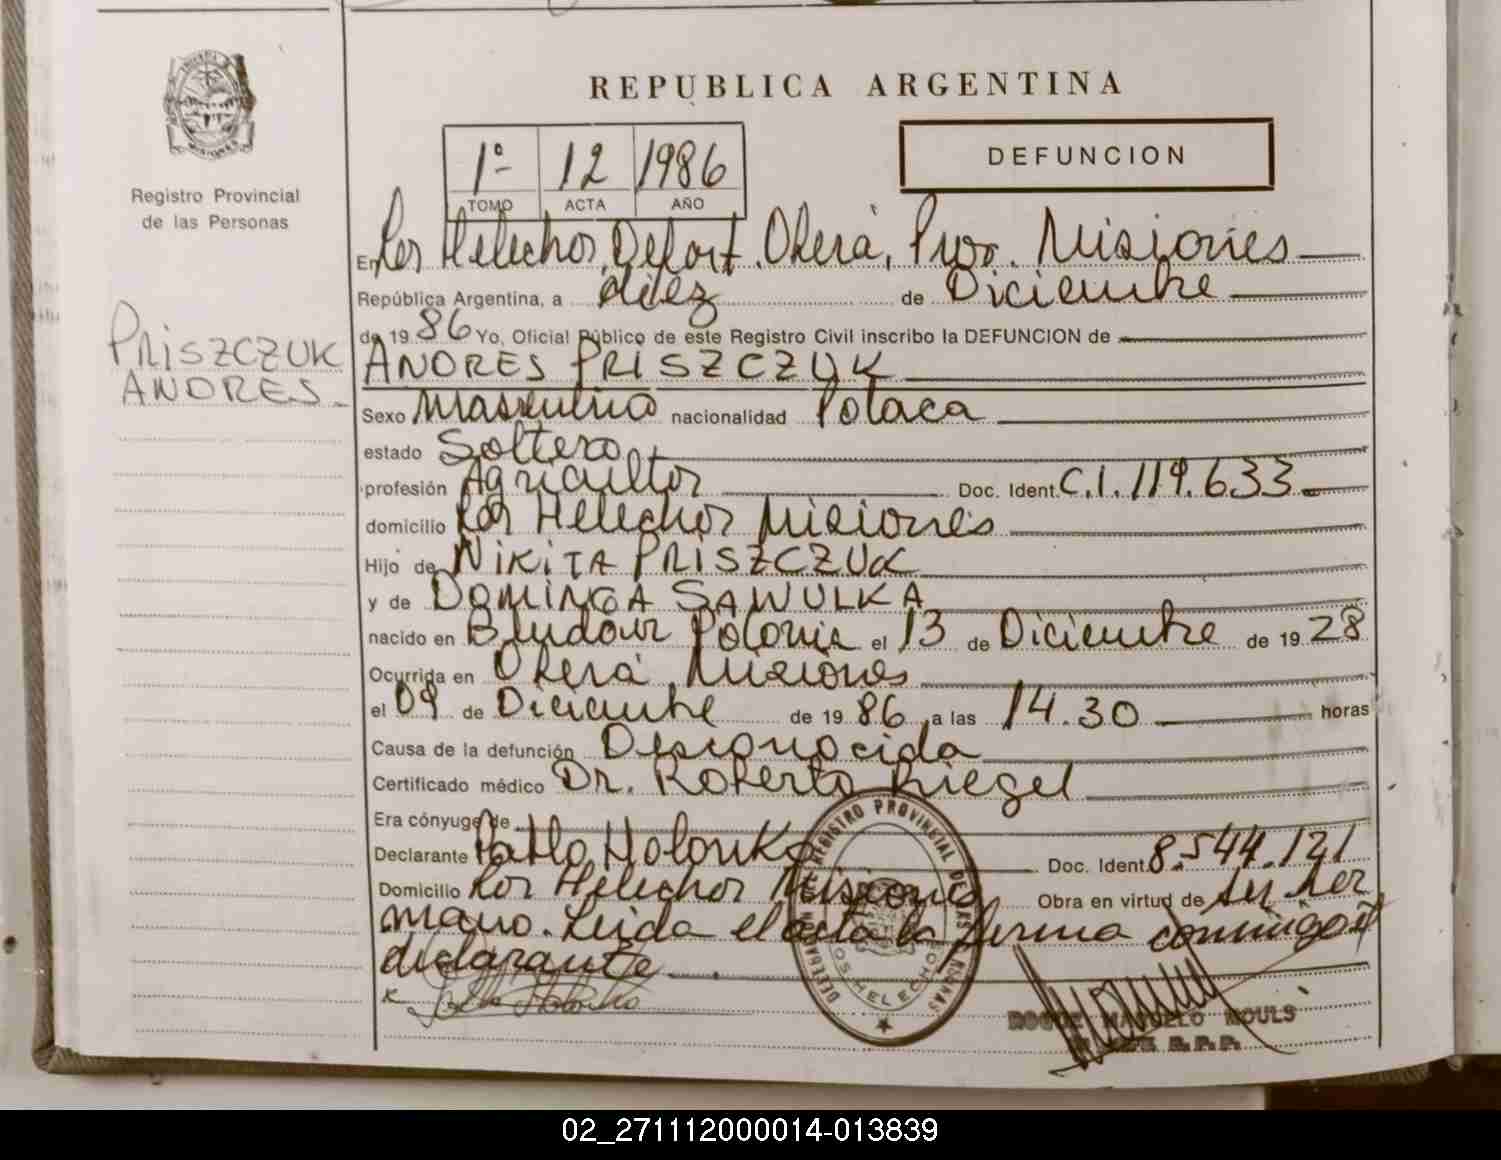 REPUBLICA ARGENTINA
1º- 12 1986
TOMO ACTA AÑO
DEFUNCION
Registro Provincial
de las Personas
PRISZCZUK
ANDRES
En Los Helechos, Depart. Oberá, Prov. Misiones
República Argentina, a diez de Diciembre
de 1986 Yo, Oficial Público de este Registro Civil inscribo la DEFUNCION de
ANDRES PRISZCZUK
Sexo Masculino nacionalidad Polaca
estado Soltero
profesión Agricultor Doc. Ident. C.I. 119.633
domicilio Los Helechos Misiones
Hijo de NIKITA PRISZCZUK
y de DOMINGA SAWULKA
nacido en Polonia el 13 de Diciembre de 1928
Ocurrida en Oberá Misiones
el 09 de Diciembre de 1986 a las 14.30 horas
Causa de la defunción Desconocida
Certificado médico Dr. Roberto Riegel
Era cónyuge de
Declarante Pablo Holonko Doc. Ident. 8.544.121
Domicilio Los Helechos Misiones Obra en virtud de ser her
mano. Leida el acta la firma conmigo el
declarante
REGISTRO PROVINCIAL DE LAS PERSONAS
LOS HELECHOS
MOULS
02_271112000014-013839